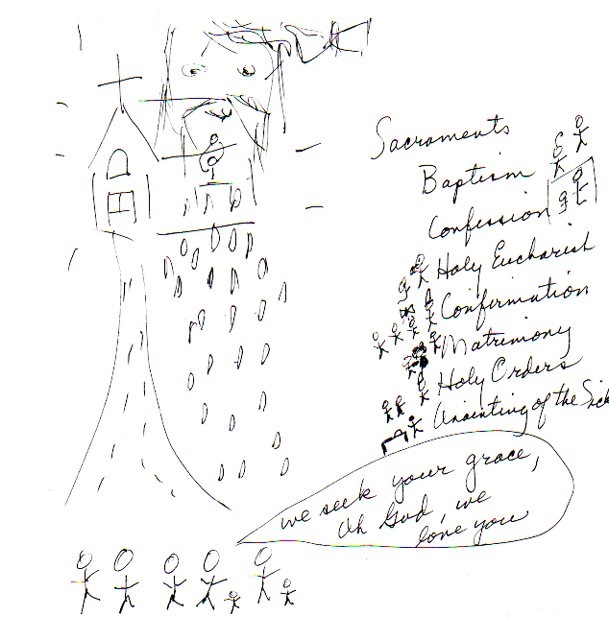 Sacraments
Baptism
Confession
Holy Eucharist
Confirmation
Matrimony
Holy Orders
Anointing of the Sick
we seek your grace,
Oh God, we
love you